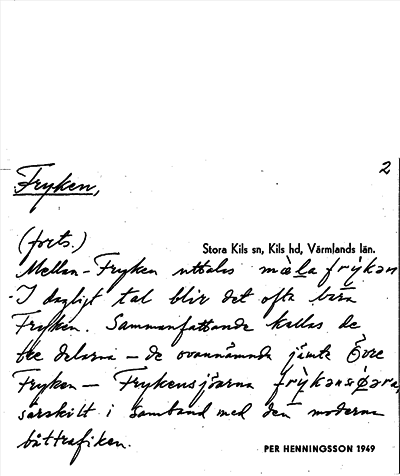 2
Fryken,
(forts.)
Stora Kils sn, Kils hd, Värmlands län.
Mellan-Fryken uttalas mæ̀la frỳkən
I dagligt tal blir det ofta bara
Fryken. Sammanfattande kallas de
tre delarna – de ovannämnda jämte Övre
Fryken – Frykensjöarna frỳkənsøara,
särskilt i samband med den moderna
båttrafiken.
PER HENNINGSSON 1949